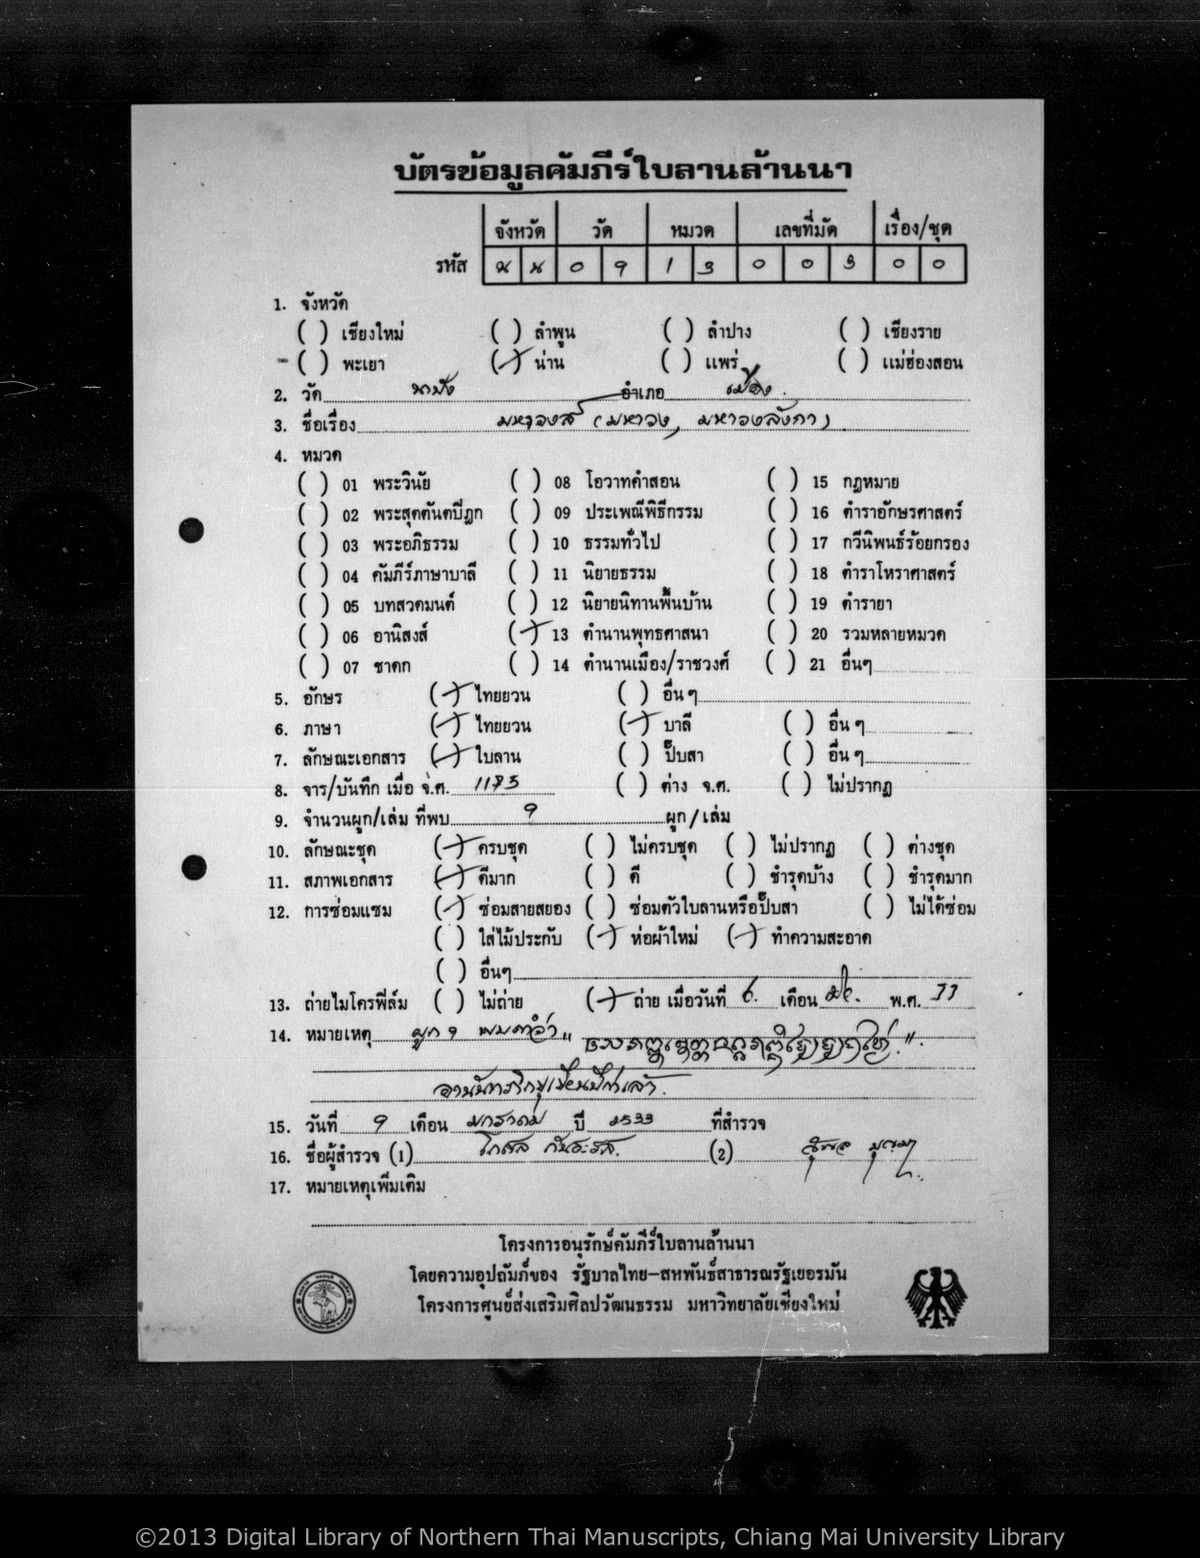 บัตรข้อมูลคัมภีร์ใบลานล้านนา
จังหวัด วัด หมวด เลขที่มัด เรื่อง/ชุด
รหัส น น 0 9 1 3 0 0 3 0 0
1. จังหวัด
( ) เชียงใหม่ ( ) ลำพูน ( ) ลำปาง ( ) เชียงราย
( ) พะเยา (/) น่าน ( ) แพร่ ( ) แม่ฮ่องสอน
2. วัด นาปัง อำเภอ เมือง
3. ชื่อเรื่อง มหาวงส์ (มหาวง, มหาวงลังกา)
4. หมวด
( ) 01 พระวินัย ( ) 08 โอวาทคำสอน ( ) 15 กฎหมาย
( ) 02 พระสุตตันตปิฎก ( ) 09 ประเพณีพิธีกรรม ( ) 16 ตำราอักษรศาสตร์
( ) 03 พระอภิธรรม ( ) 10 ธรรมทั่วไป ( ) 17 กวีนิพนธ์ร้อยกรอง
( ) 04 คัมภีร์ภาษาบาลี ( ) 11 นิยายธรรม ( ) 18 ตำราโหราศาสตร์
( ) 05 บทสวดมนต์ ( ) 12 นิยายนิทานพื้นบ้าน ( ) 19 ตำรายา
( ) 06 อานิสงส์ (/) 13 ตำนานพุทธศาสนา ( ) 20 รวมหลายหมวด
( ) 07 ชาดก ( ) 14 ตำนานเมือง/ราชวงศ์ ( ) 21 อื่นๆ
5. อักษร (/) ไทยยวน ( ) อื่น ๆ
6. ภาษา (/) ไทยยวน (/) บาลี ( ) อื่น ๆ
7. ลักษณะเอกสาร (/) ใบลาน ( ) ปั๊บสา ( ) อื่น ๆ
8. จาร/บันทึก เมื่อ จ.ศ. 1193 ( ) ต่าง จ.ศ. ( ) ไม่ปรากฏ
9. จำนวนผูก/เล่ม ที่พบ 9 ผูก/เล่ม
10. ลักษณะชุด (/) ครบชุด ( ) ไม่ครบชุด ( ) ไม่ปรากฏ ( ) ต่างชุด
11. สภาพเอกสาร (/) ดีมาก ( ) ดี ( ) ชำรุดบ้าง ( ) ชำรุดมาก
12. การซ่อมแซม (/) ซ่อมสายสยอง ( ) ซ่อมตัวใบลานหรือปั๊บสา ( ) ไม่ได้ซ่อม
( ) ใส่ไม้ประกับ (/) ห่อผ้าใหม่ (/) ทำความสะอาด
( ) อื่นๆ
13. ถ่ายไมโครฟิล์ม ( ) ไม่ถ่าย (/) ถ่าย เมื่อวันที่ 6. เดือน มิ. พ.ศ. 33
14. หมายเหตุ ผูก 9
15. วันที่ 9 เดือน มกราคม ปี 2533 ที่สำรวจ
16. ชื่อผู้สำรวจ (1) โกศล (2)
17. หมายเหตุเพิ่มเติม
โครงการอนุรักษ์คัมภีร์ใบลานล้านนา
โดยความอุปถัมภ์ของ รัฐบาลไทย-สหพันธ์สาธารณรัฐเยอรมัน
โครงการศูนย์ส่งเสริมศิลปวัฒนธรรม มหาวิทยาลัยเชียงใหม่
©2013 Digital Library of Northern Thai Manuscripts, Chiang Mai University Library